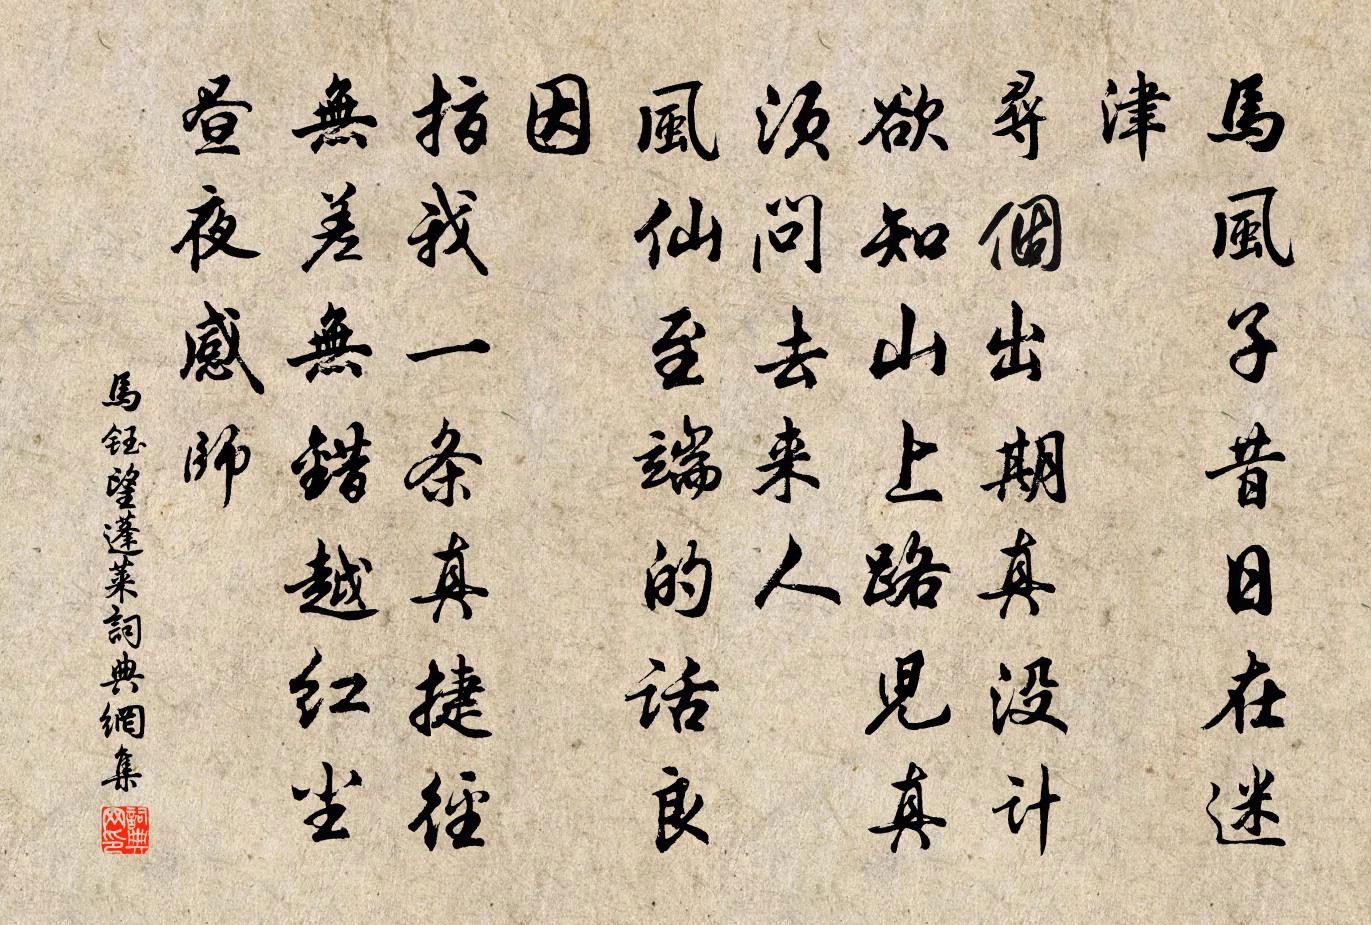 馬風子昔日在迷
津
尋個出期真没计
欲知山上路児真
須問去来人
風仙至端的话良
因
指我一条真捷徑
無差無錯越红尘
昼夜感师
馬鈺望蓬莱詞典網集
詞典
网印